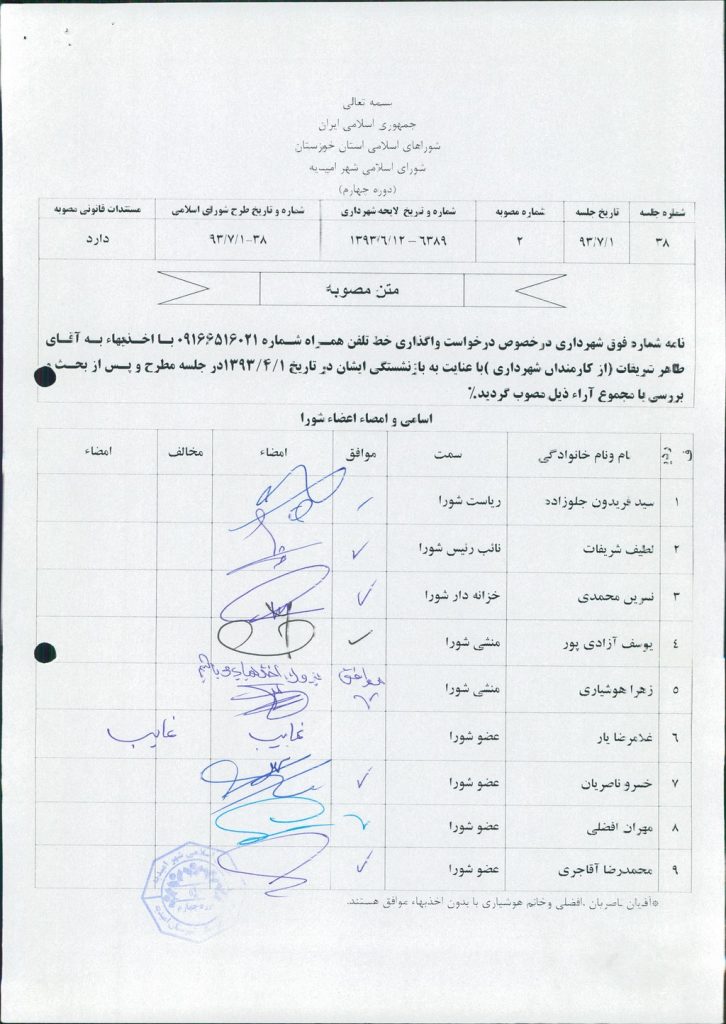 بسمه تعالی
جمهوری اسلامی ایران
شوراهای اسلامی استان خوزستان
شورای اسلامی شهر امیدیه
(دوره چهارم)
شماره جلسه تاریخ جلسه شماره مصوبه شماره و تاریخ لایحه شهرداری شماره و تاریخ طرح شورای اسلامی مستندات قانونی مصوبه
۳۸ ۹۳/۷/۱ ۲ ۶۳۸۹ – ۱۳۹۳/۶/۱۲ ۳۸-۹۳/۷/۱ دارد
متن مصوبه
نامه شماره فوق شهرداری درخصوص درخواست واگذاری خط تلفن همراه شماره ۰۹۱۶۶۵۱۶۰۲۱ با اخذبهاء به آقای
طاهر شریفات (از کارمندان شهرداری )با عنایت به بازنشستگی ایشان در تاریخ ۱۳۹۳/۴/۱در جلسه مطرح و پس از بحث و
بررسی با مجموع آراء ذیل مصوب گردید.٪
اسامی و امضاء اعضاء شورا
ردیف نام ونام خانوادگی سمت موافق امضاء مخالف امضاء
۱ سید فریدون جلوزاده ریاست شورا
۲ لطیف شریفات نائب رئیس شورا
۳ نسرین محمدی خزانه دار شورا
۴ یوسف آزادی پور منشی شورا
۵ زهرا هوشیاری منشی شورا موافق بدون اخذبهاء می باشم
۶ غلامرضا یار عضو شورا غایب غایب
۷ خسرو ناصریان عضو شورا
۸ مهران افضلی عضو شورا
۹ محمدرضا آقاجری عضو شورا
*آقایان ناصریان ،افضلی وخانم هوشیاری با بدون اخذبهاء موافق هستند.